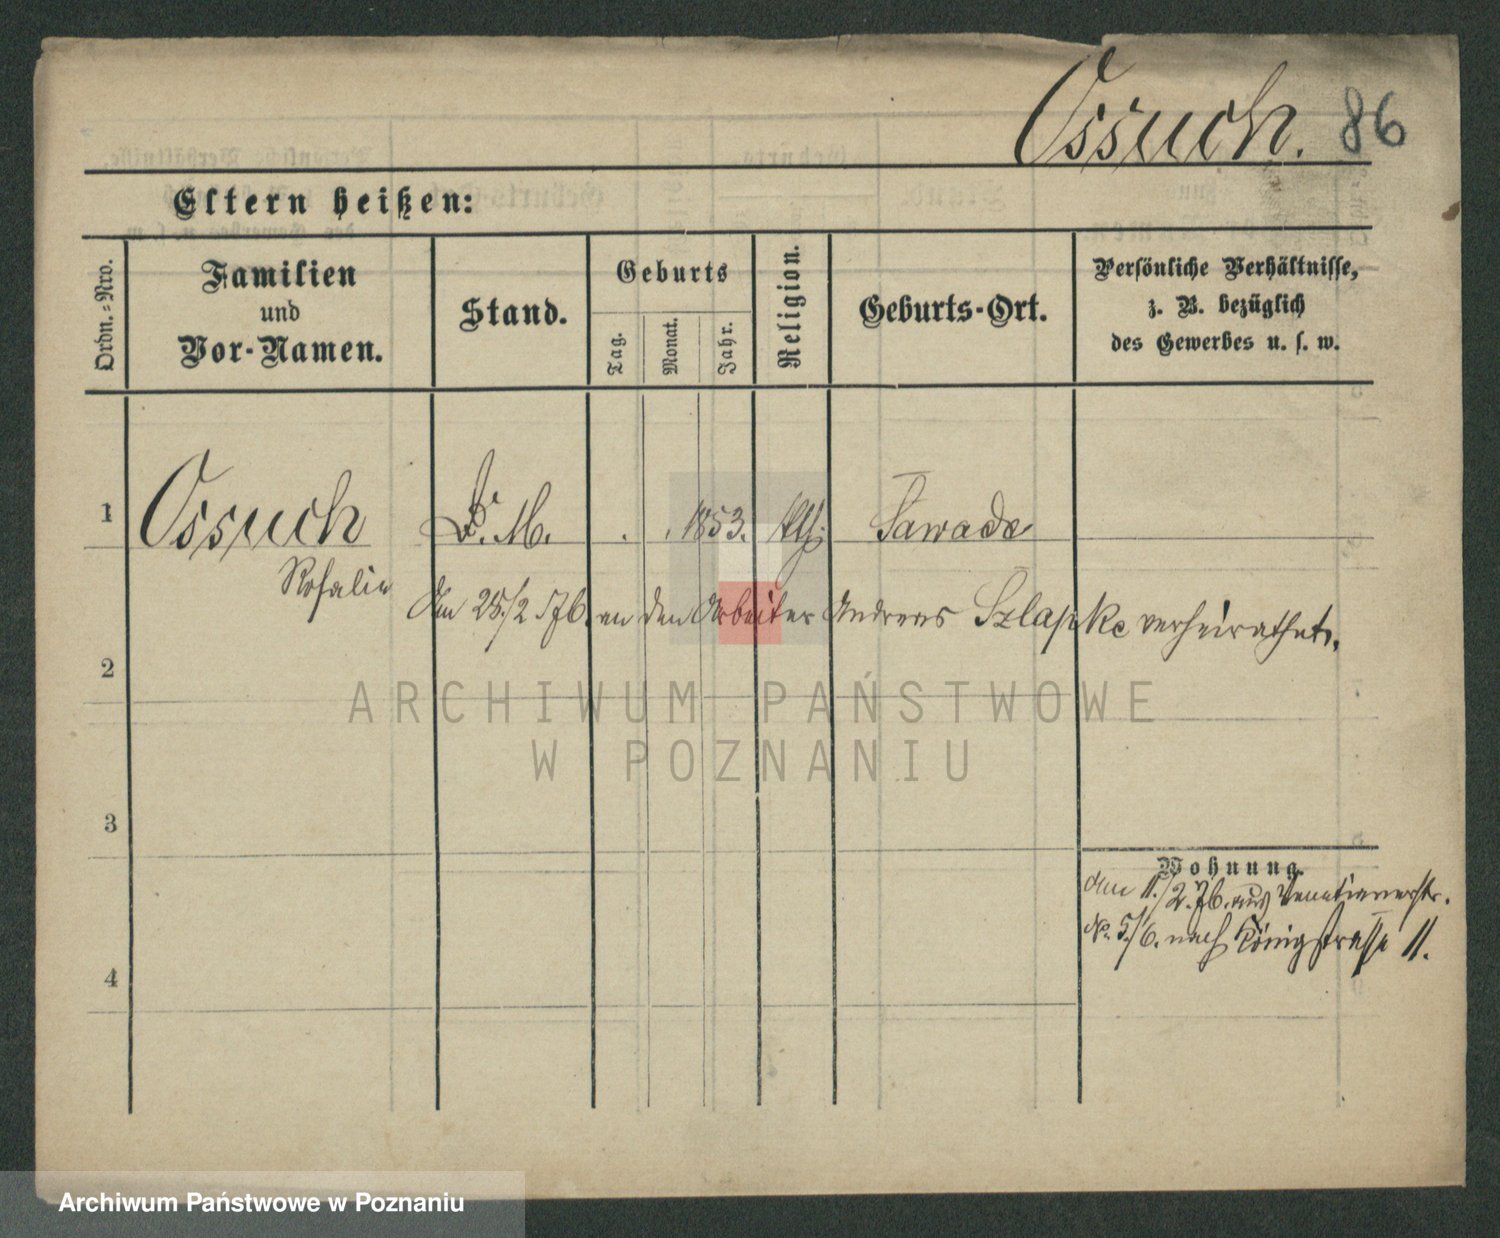 Ossuch. 86
Eltern heißen:
Ordn.-Nro.
Familien
und
Vor-Namen.
Stand.
Geburts
Tag.
Monat.
Jahr.
Religion.
Geburts-Ort.
Persönliche Verhältnisse,
z. B. bezüglich
des Gewerbes u. s. w.
1 Ossuch D. M. . . 1853. kth. Sawade
Rosalie
Am 25./2 76. an den Arbeiter Andreas Szlapke verheirathet.
2
ARCHIWUM PAŃSTWOWE
W POZNANIU
3
Wohnung.
den 11./2. 76. aus Venetianerstr.
No. 5/6. nach Königstrasse 11.
4
Archiwum Państwowe w Poznaniu